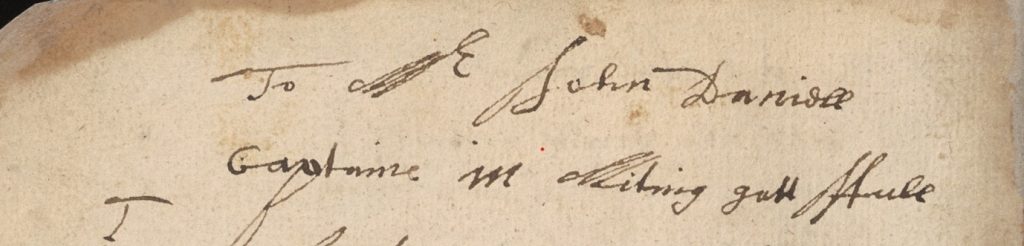 To Mr John Daniell
Captaine in Miting gatt ffull
T